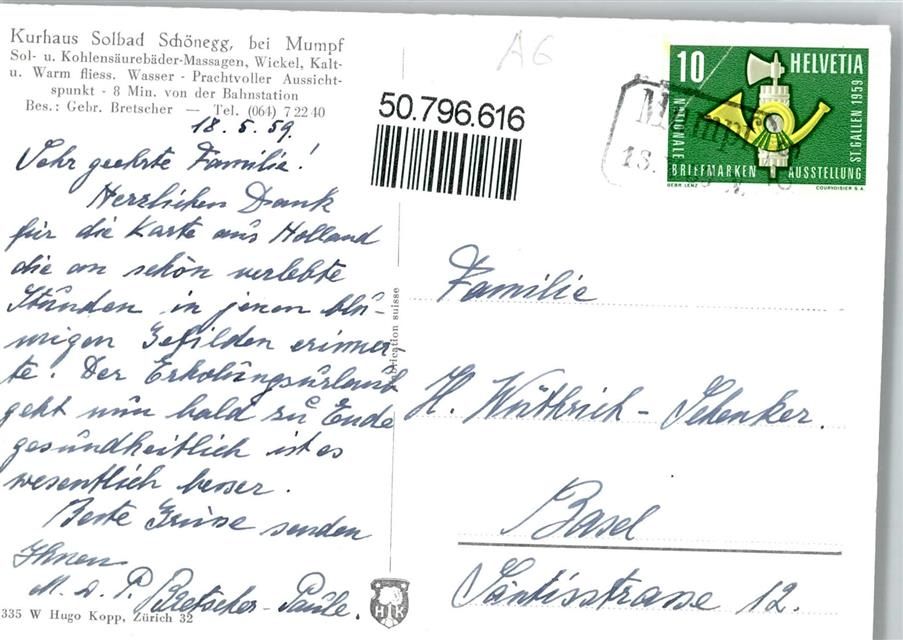 Kurhaus Solbad Schönegg, bei Mumpf
Sol- u. Kohlensäurebäder-Massagen, Wickel, Kalt-
u. Warm fliess. Wasser - Prachtvoller Aussicht-
spunkt - 8 Min. von der Bahnstation
Bes.: Gebr. Bretscher — Tel. (064) 7 22 40
18. 5. 59.
Sehr geehrte Familie!
Herzlichen Dank
für die Karte aus Holland
die an schön verlebte
Stunden in jenen blu-
migen Gefilden erinner-
te. Der Erholungsurlaub
geht nun bald zu Ende
gesundheitlich ist es
wesentlich besser.
Beste Grüsse senden
Ihnen
M. d. P. Bretscher-Paule.
335 W Hugo Kopp, Zürich 32
HK
Fabrication suisse
A6
50.796.616
10 HELVETIA
NATIONALE
BRIEFMARKEN AUSSTELLUNG
ST. GALLEN 1959
GEBR. LENZ
COURVOISIER S.A.
Mumpf
18.
Familie
H. Wüthrich-Schenker.
Basel
Säntisstrasse 12.